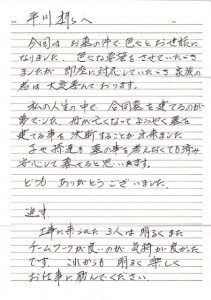 平川様へ
今回は お墓の件で 色々とお世話に
なりました。色々な希望をさせていただき
ましたが 即座に対応していただき 家族の
者は 大変喜んでおります。
私の人生の中で 今回墓を建てるのが
夢でした。母が亡くなって ようやく墓を
建てる事を 決断することが出来ました
子や孫達も 墓の事を考えなくても済み
安心して 暮せると思います。
どうも ありがとうございました。
追申
工事に来られた 3人は 明るく また
チームワークが良いので 気持が良かった
です。これからも 明るく 楽しく
お仕事に励んでください。